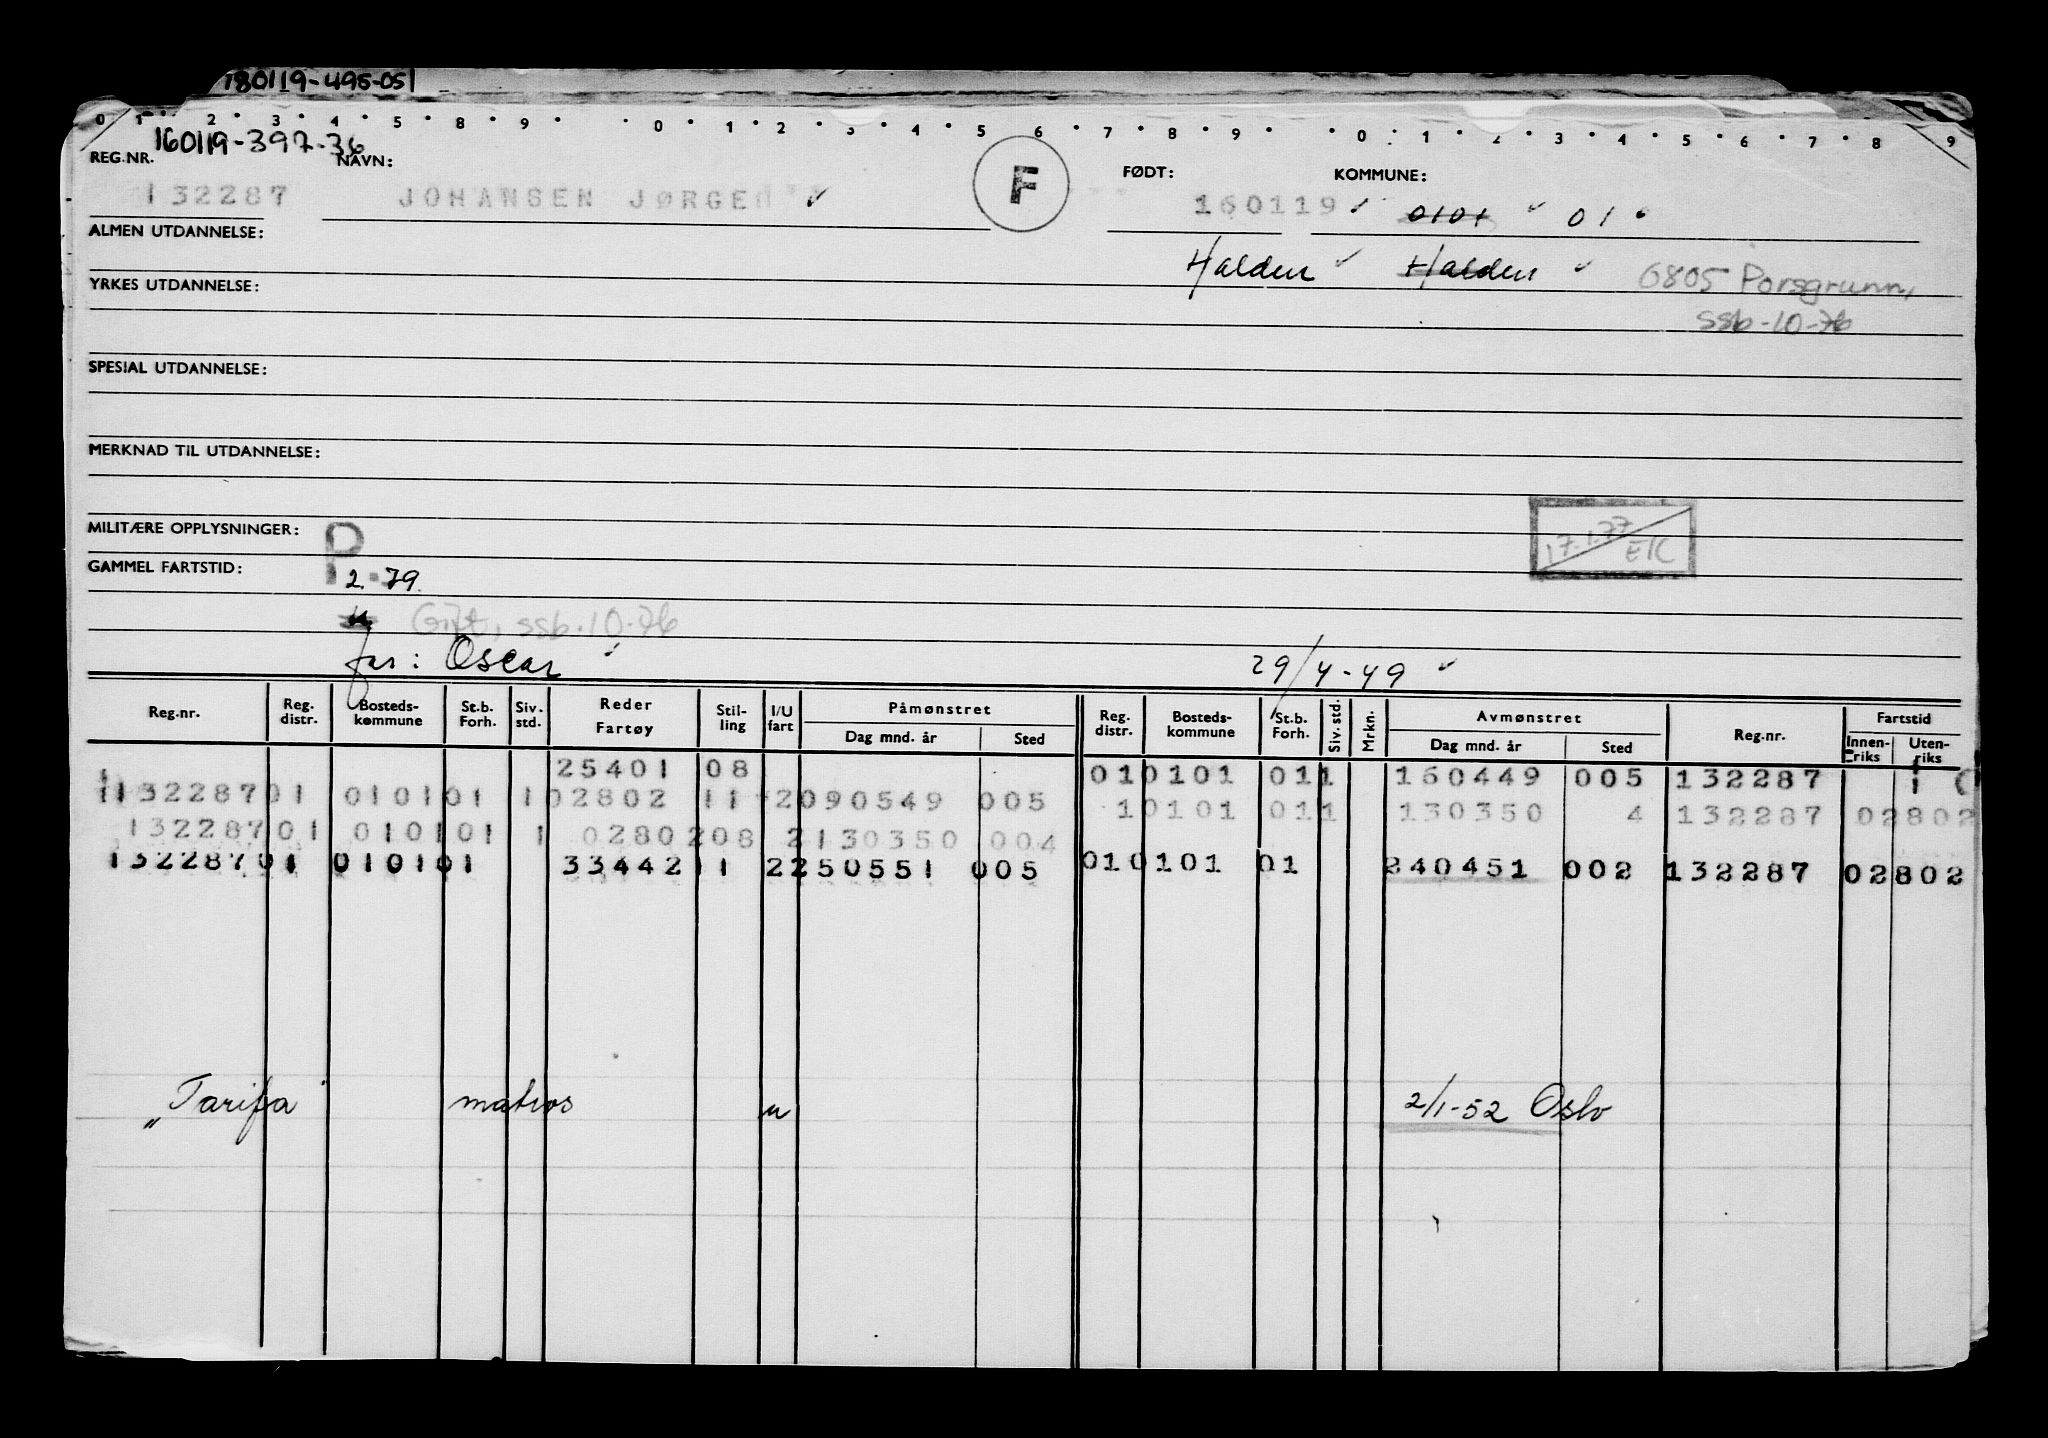 180119-495-05
0 1 2 3 4 5 8 9 0 1 2 3 4 5 6 7 8 9 0 1 2 3 4 5 6 7 8 9
160119-397-36
REG.NR. NAVN: F FØDT: KOMMUNE:
132287 JOHANSEN JØRGEN 160119 0101 01
ALMEN UTDANNELSE:
Halden Halden 6805 Porsgrunn,
YRKES UTDANNELSE:
ssb-10-76
SPESIAL UTDANNELSE:
MERKNAD TIL UTDANNELSE:
MILITÆRE OPPLYSNINGER: P 17.1.77 EK
GAMMEL FARTSTID: 2.79.
Gift, ssb.10-76
far: Oscar 29/4-49
Reg.nr. Reg. distr. Bosteds-kommune St.b. Forh. Siv. std. Reder Fartøy Stil-ling I/U fart Påmønstret Dag mnd. år Sted Reg. distr. Bosteds-kommune St.b. Forh. Siv. std. Mrkn. Avmønstret Dag mnd. år Sted Reg.nr. Fartstid Innen-riks Uten-riks
25401 08 010101 011 160449 005 132287
132287 01 0101 01 1 02802 11 2 090549 005 10101 011 130350 4 132287 02802
132287 01 0101 01 1 02802 08 2 130350 004
132287 01 0101 01 33442 11 2 250551 005 010101 01 240451 002 132287 02802
"Tarifa" matros u 2/1-52 Oslo